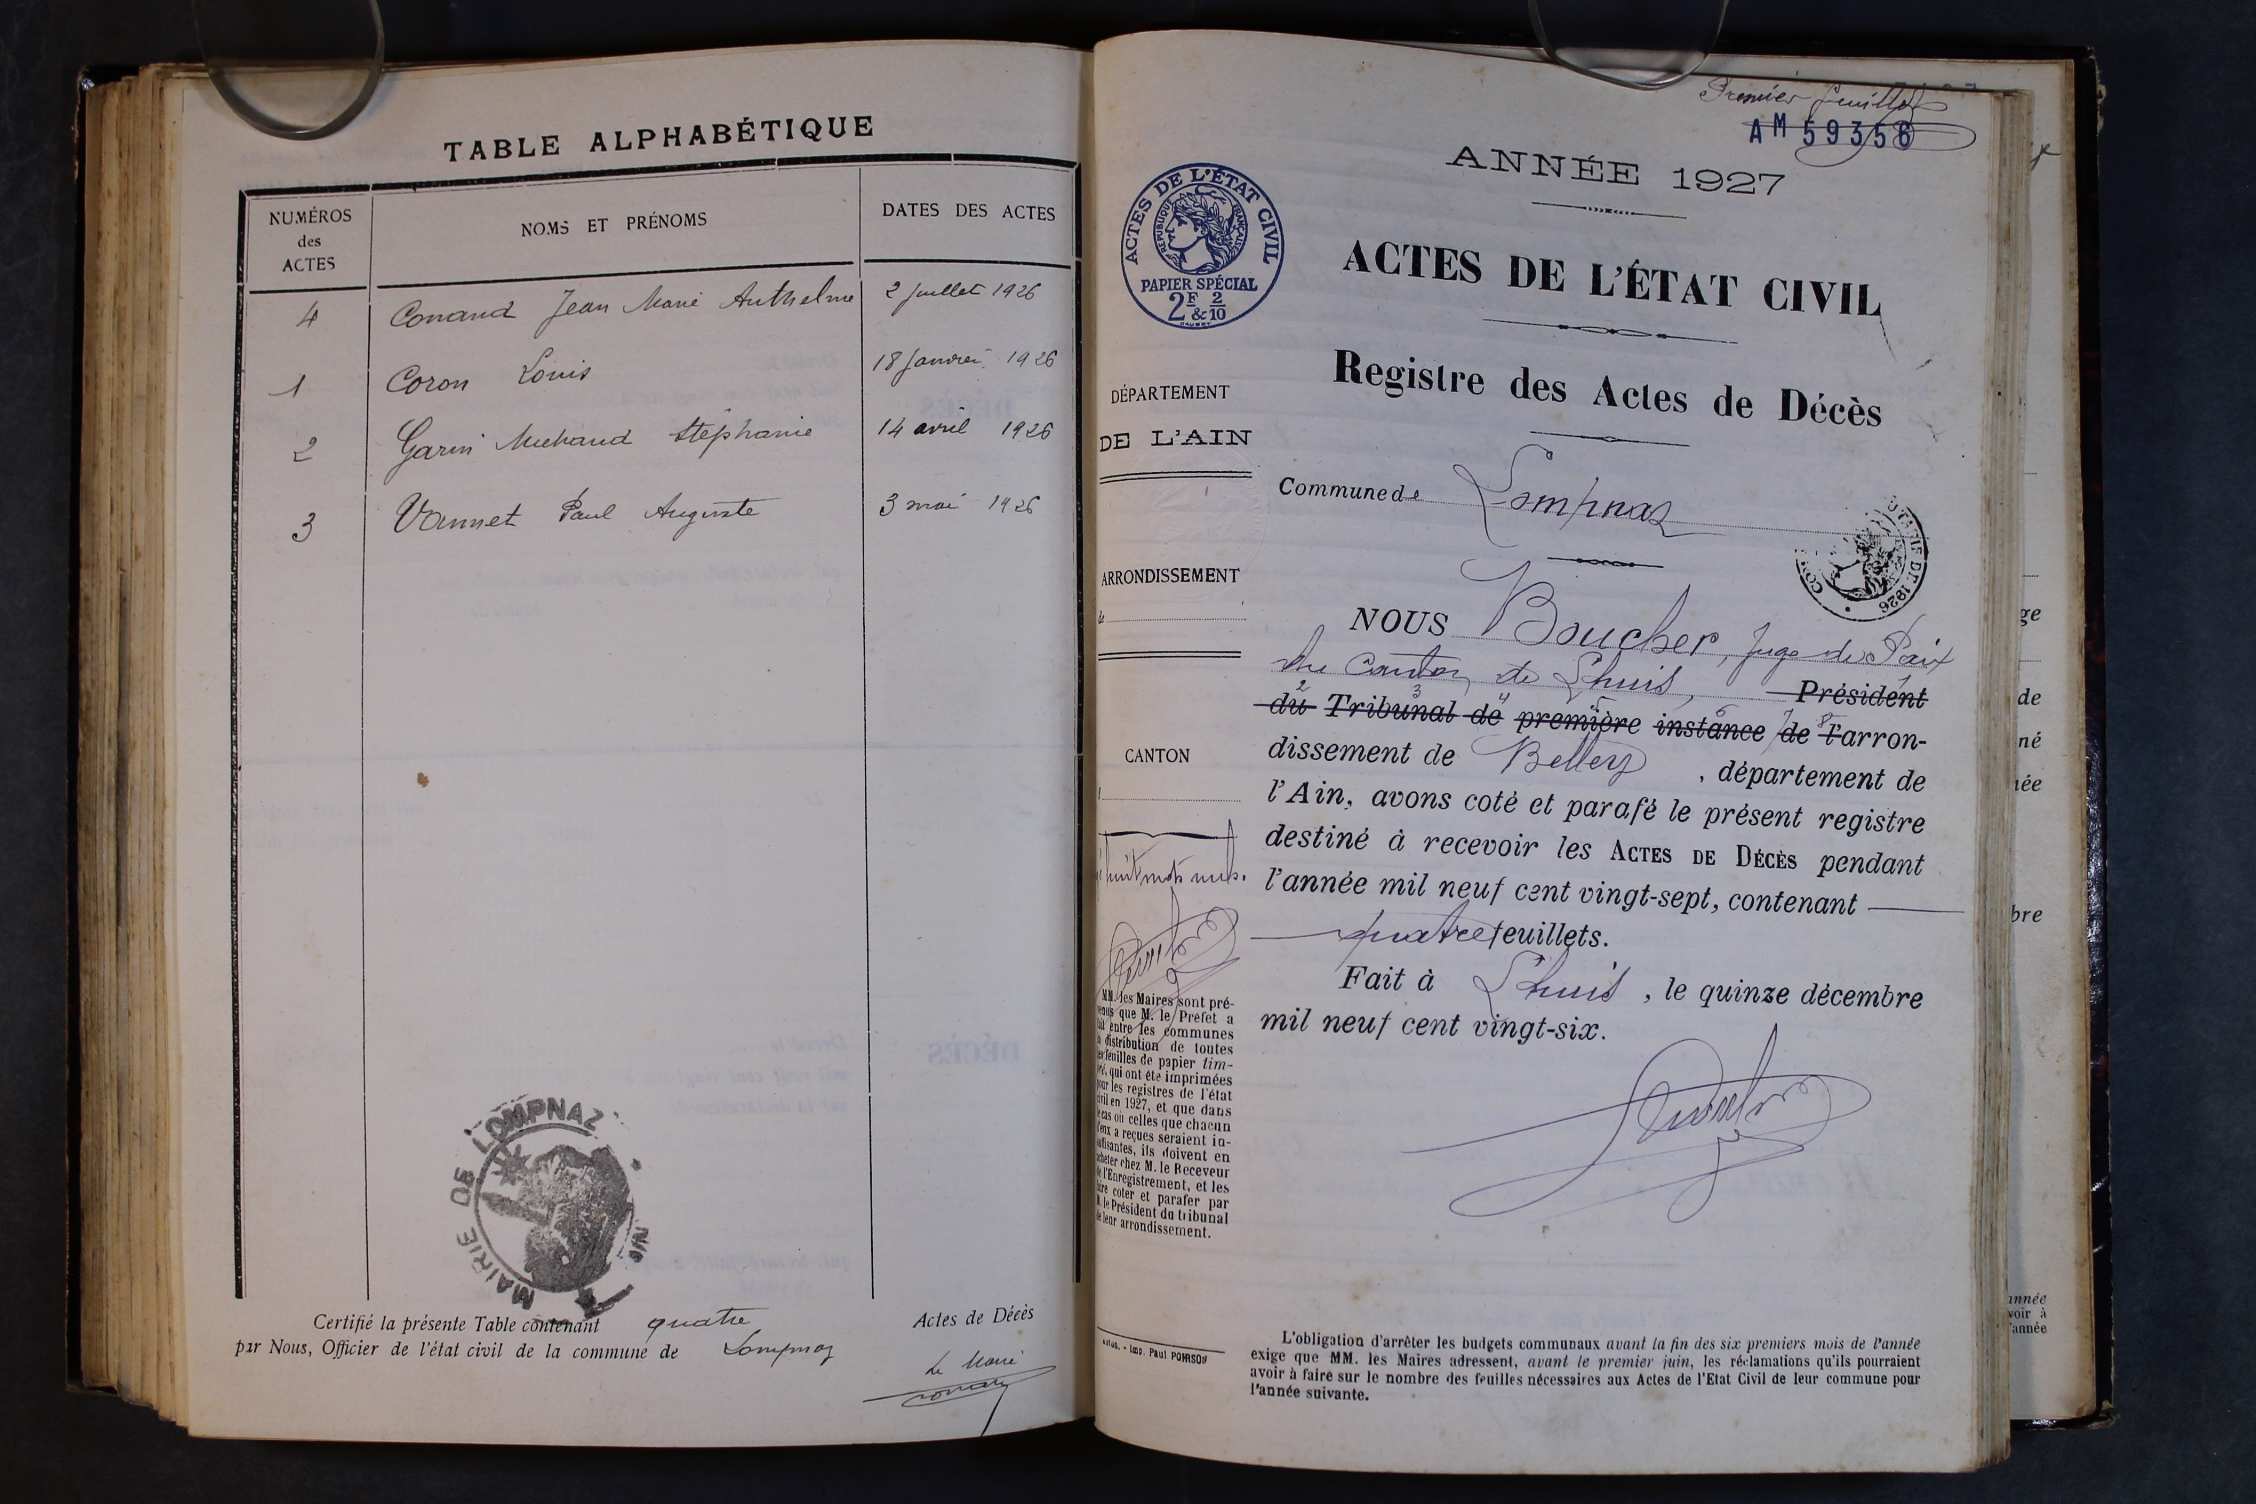 TABLE ALPHABÉTIQUE
NUMÉROS des ACTES
NOMS ET PRÉNOMS
DATES DES ACTES
4 Conand Jean Marie Anthelme 2 juillet 1926
1 Coron Louis 18 Janvier 1926
2 Garin Michaud Stéphanie 14 avril 1926
3 Vannet Paul Auguste 3 mai 1926
MAIRIE DE LOMPNAZ
Certifié la présente Table contenant quatre Actes de Décès
par Nous, Officier de l'état civil de la commune de Lompnaz
Le Maire
Premier feuillet
AM 59356
ANNÉE 1927
ACTES DE L'ÉTAT CIVIL
RÉPUBLIQUE FRANÇAISE
PAPIER SPÉCIAL
2F & 2/10
ACTES DE L'ÉTAT CIVIL
Registre des Actes de Décès
DÉPARTEMENT
DE L'AIN
Commune de Lompnaz
1926
ARRONDISSEMENT
de
NOUS Boucher, Juge de Paix
du Canton de Lhuis, Président
du Tribunal de première instance de l'arron-
dissement de Belley, département de
l'Ain, avons coté et parafé le présent registre
destiné à recevoir les ACTES DE DÉCÈS pendant
l'année mil neuf cent vingt-sept, contenant
quatre feuillets.
Fait à Lhuis, le quinze décembre
mil neuf cent vingt-six.
CANTON
huit mots nuls.
MM. les Maires sont pré-
venus que M. le Préfet a
fait entre les communes
la distribution de toutes
les feuilles de papier tim-
bré, qui ont été imprimées
pour les registres de l'état
civil en 1927, et que dans
le cas où celles que chacun
d'eux a reçues seraient in-
suffisantes, ils doivent en
acheter chez M. le Receveur
de l'Enregistrement, et les
faire coter et parafer par
M. le Président du tribunal
de leur arrondissement.
Imp. Paul POIRSON
L'obligation d'arrêter les budgets communaux avant la fin des six premiers mois de l'année
exige que MM. les Maires adressent, avant le premier juin, les réclamations qu'ils pourraient
avoir à faire sur le nombre des feuilles nécessaires aux Actes de l'Etat Civil de leur commune pour
l'année suivante.